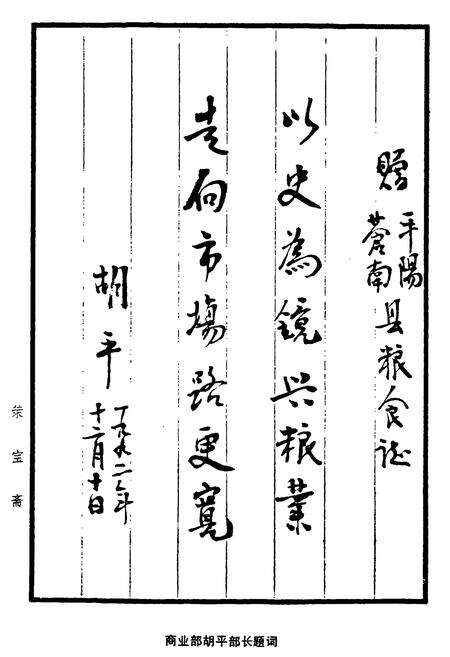 赠平陽蒼南县粮食誌
以史為鏡兴粮業
走向市場路更寬
胡平
一九九二年
十二月十日
荣宝斋
商业部胡平部长题词